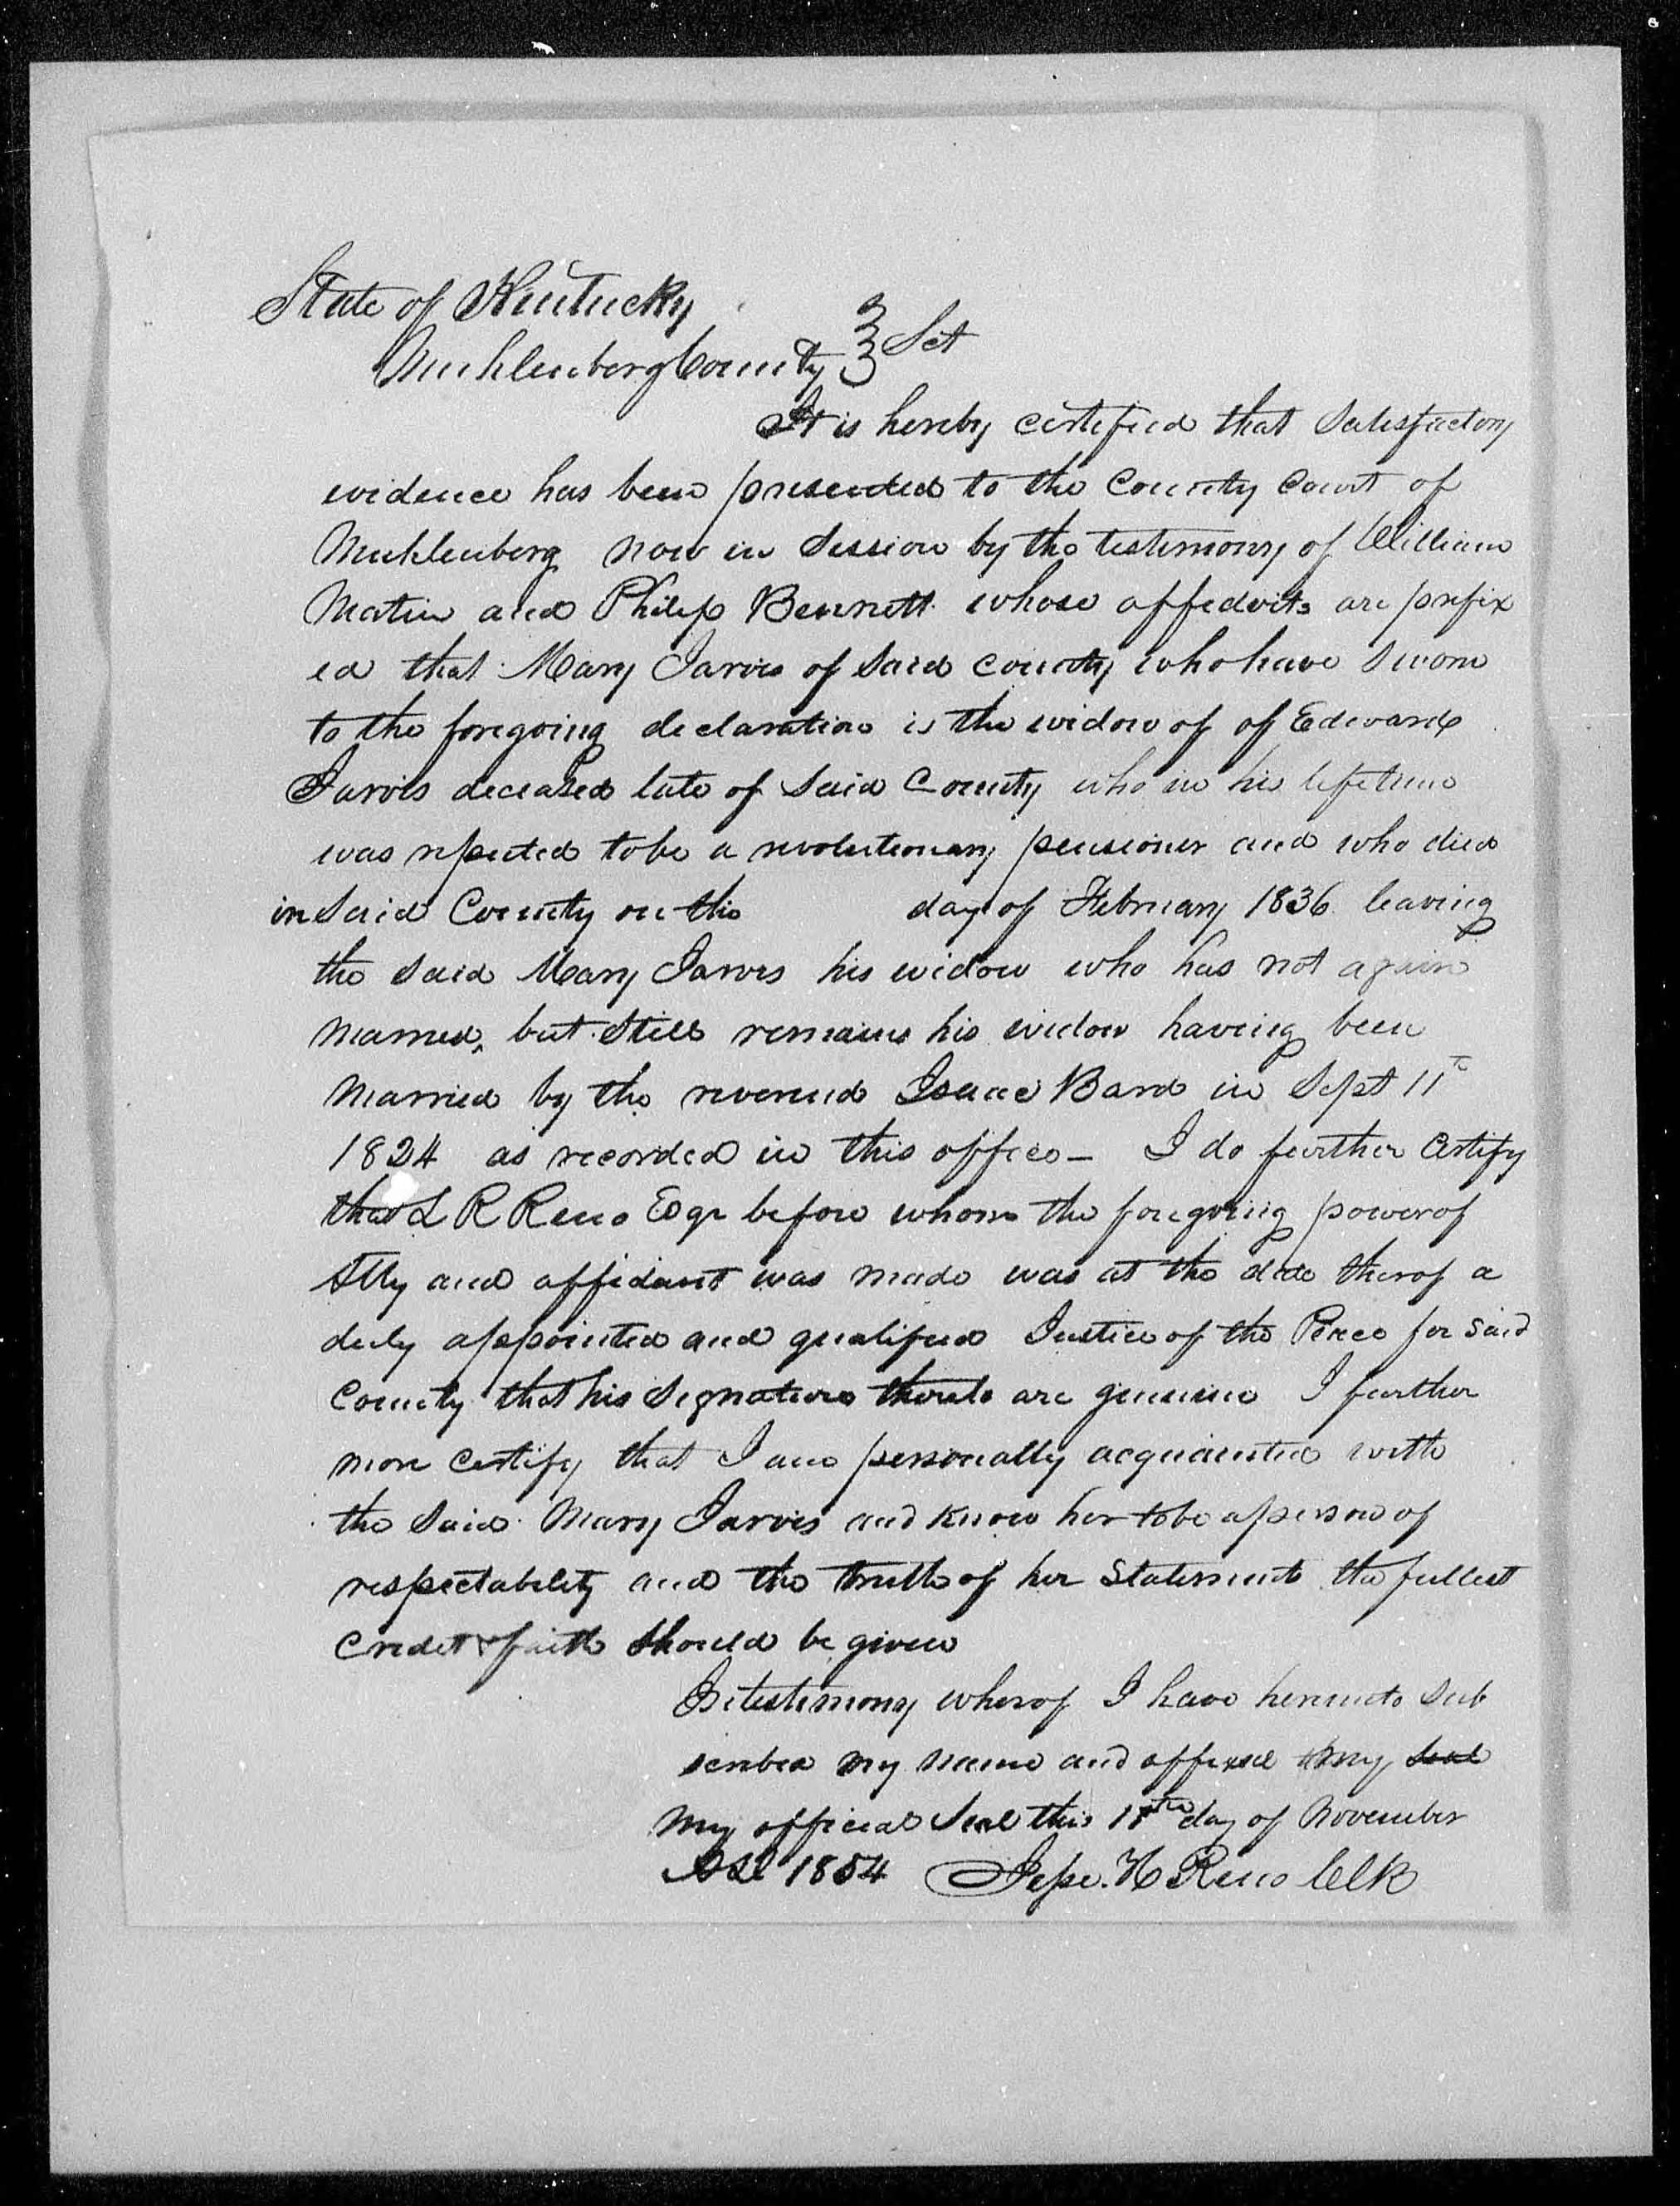 State of Kentucky
Muhlenberg County } Sct
It is hereby certified that Satisfactory
evidence has been presented to the County Court of
Muhlenberg now in Session by the testimony of William
Matin and Philip Bennett whose affedvits are prefix
ed that Mary Jarvis of said county who have sworn
to the foregoing declaration is the widow of of Edward
Jarvis deceased late of said County who in his lifetime
was reputed to be a revolutionary pensioner and who died
in Said County on the day of February 1836 leaving
the said Mary Jarvis his widow who has not again
married, but still remains his widow having been
married by the reverend Isaac Bard in Sept 11th
1824 as recorded in this office – I do further certify
that L R Reno Esqr before whom the foregoing power of
Atty and affidavit was made was at the date therof a
duly appointed and qualified Justice of the Peace for said
County that his Signatures thereto are genuine I further
more certify that I am personally acquainted with
the said Mary Jarvis and know her to be a person of
respectability and the truth of her Statements the fullest
credit & faith should be given
In testimony wherof I have hereunto Sub
scribed my name and affixed my seal
my official Seal this 11th day of November
1854 Jesse. H Reno Clk